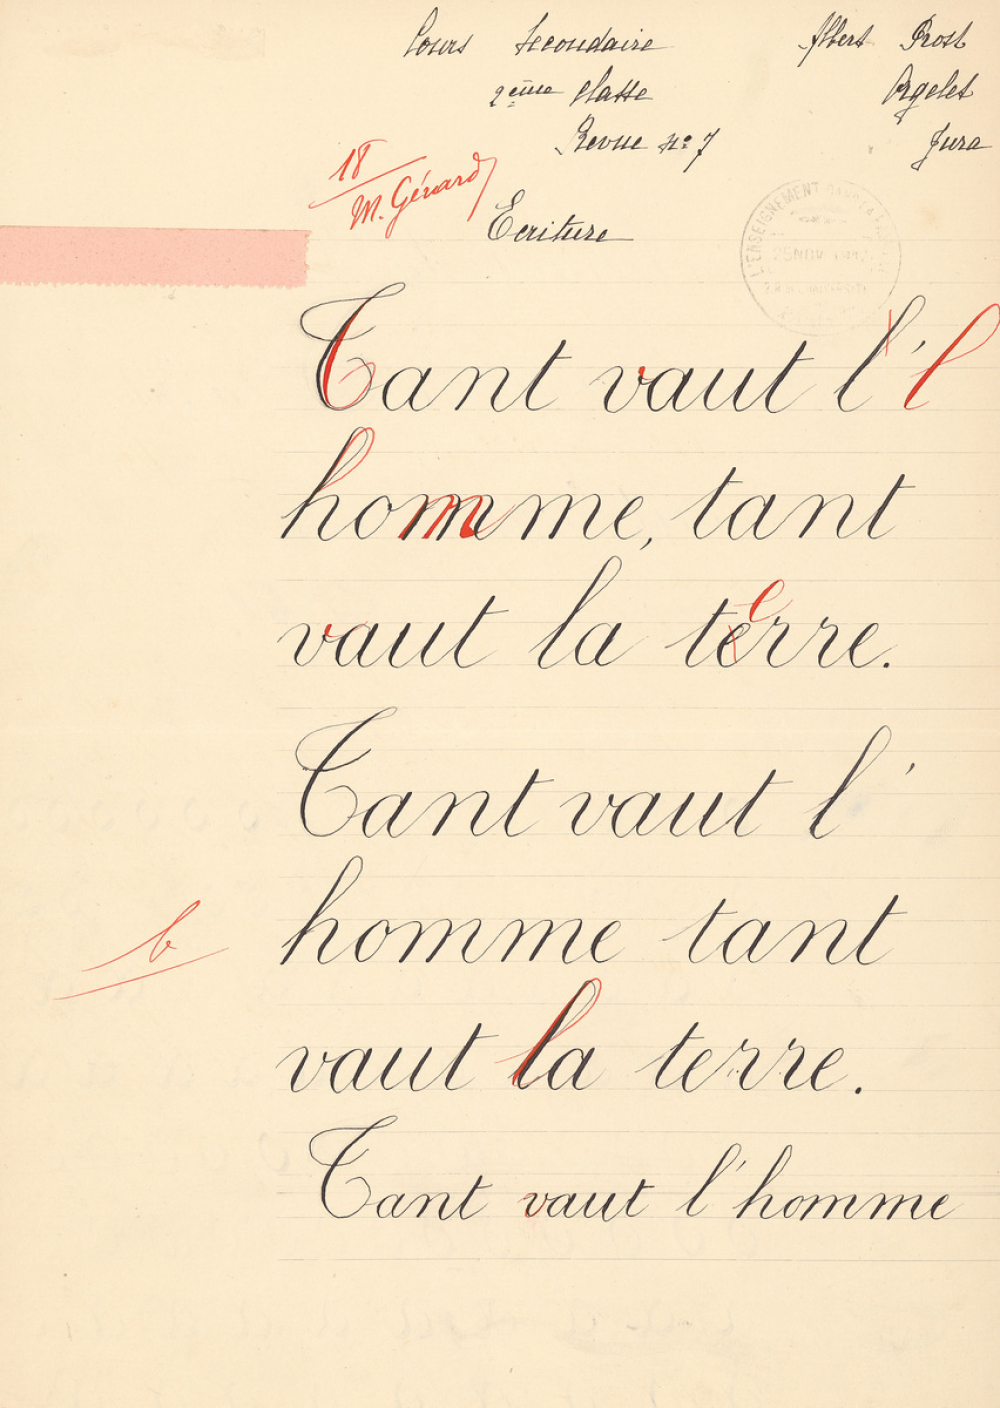 Cours Secondaire Albert Prost
2ème Classe Orgelet
Revue nº 7 Jura
18
M. Gérard
Ecriture
L'ENSEIGNEMENT
25 NOV
Tant vaut l' l
homme, tant
e
vaut la terre.
Tant vaut l'
homme tant
b
vaut la terre.
Tant vaut l'homme